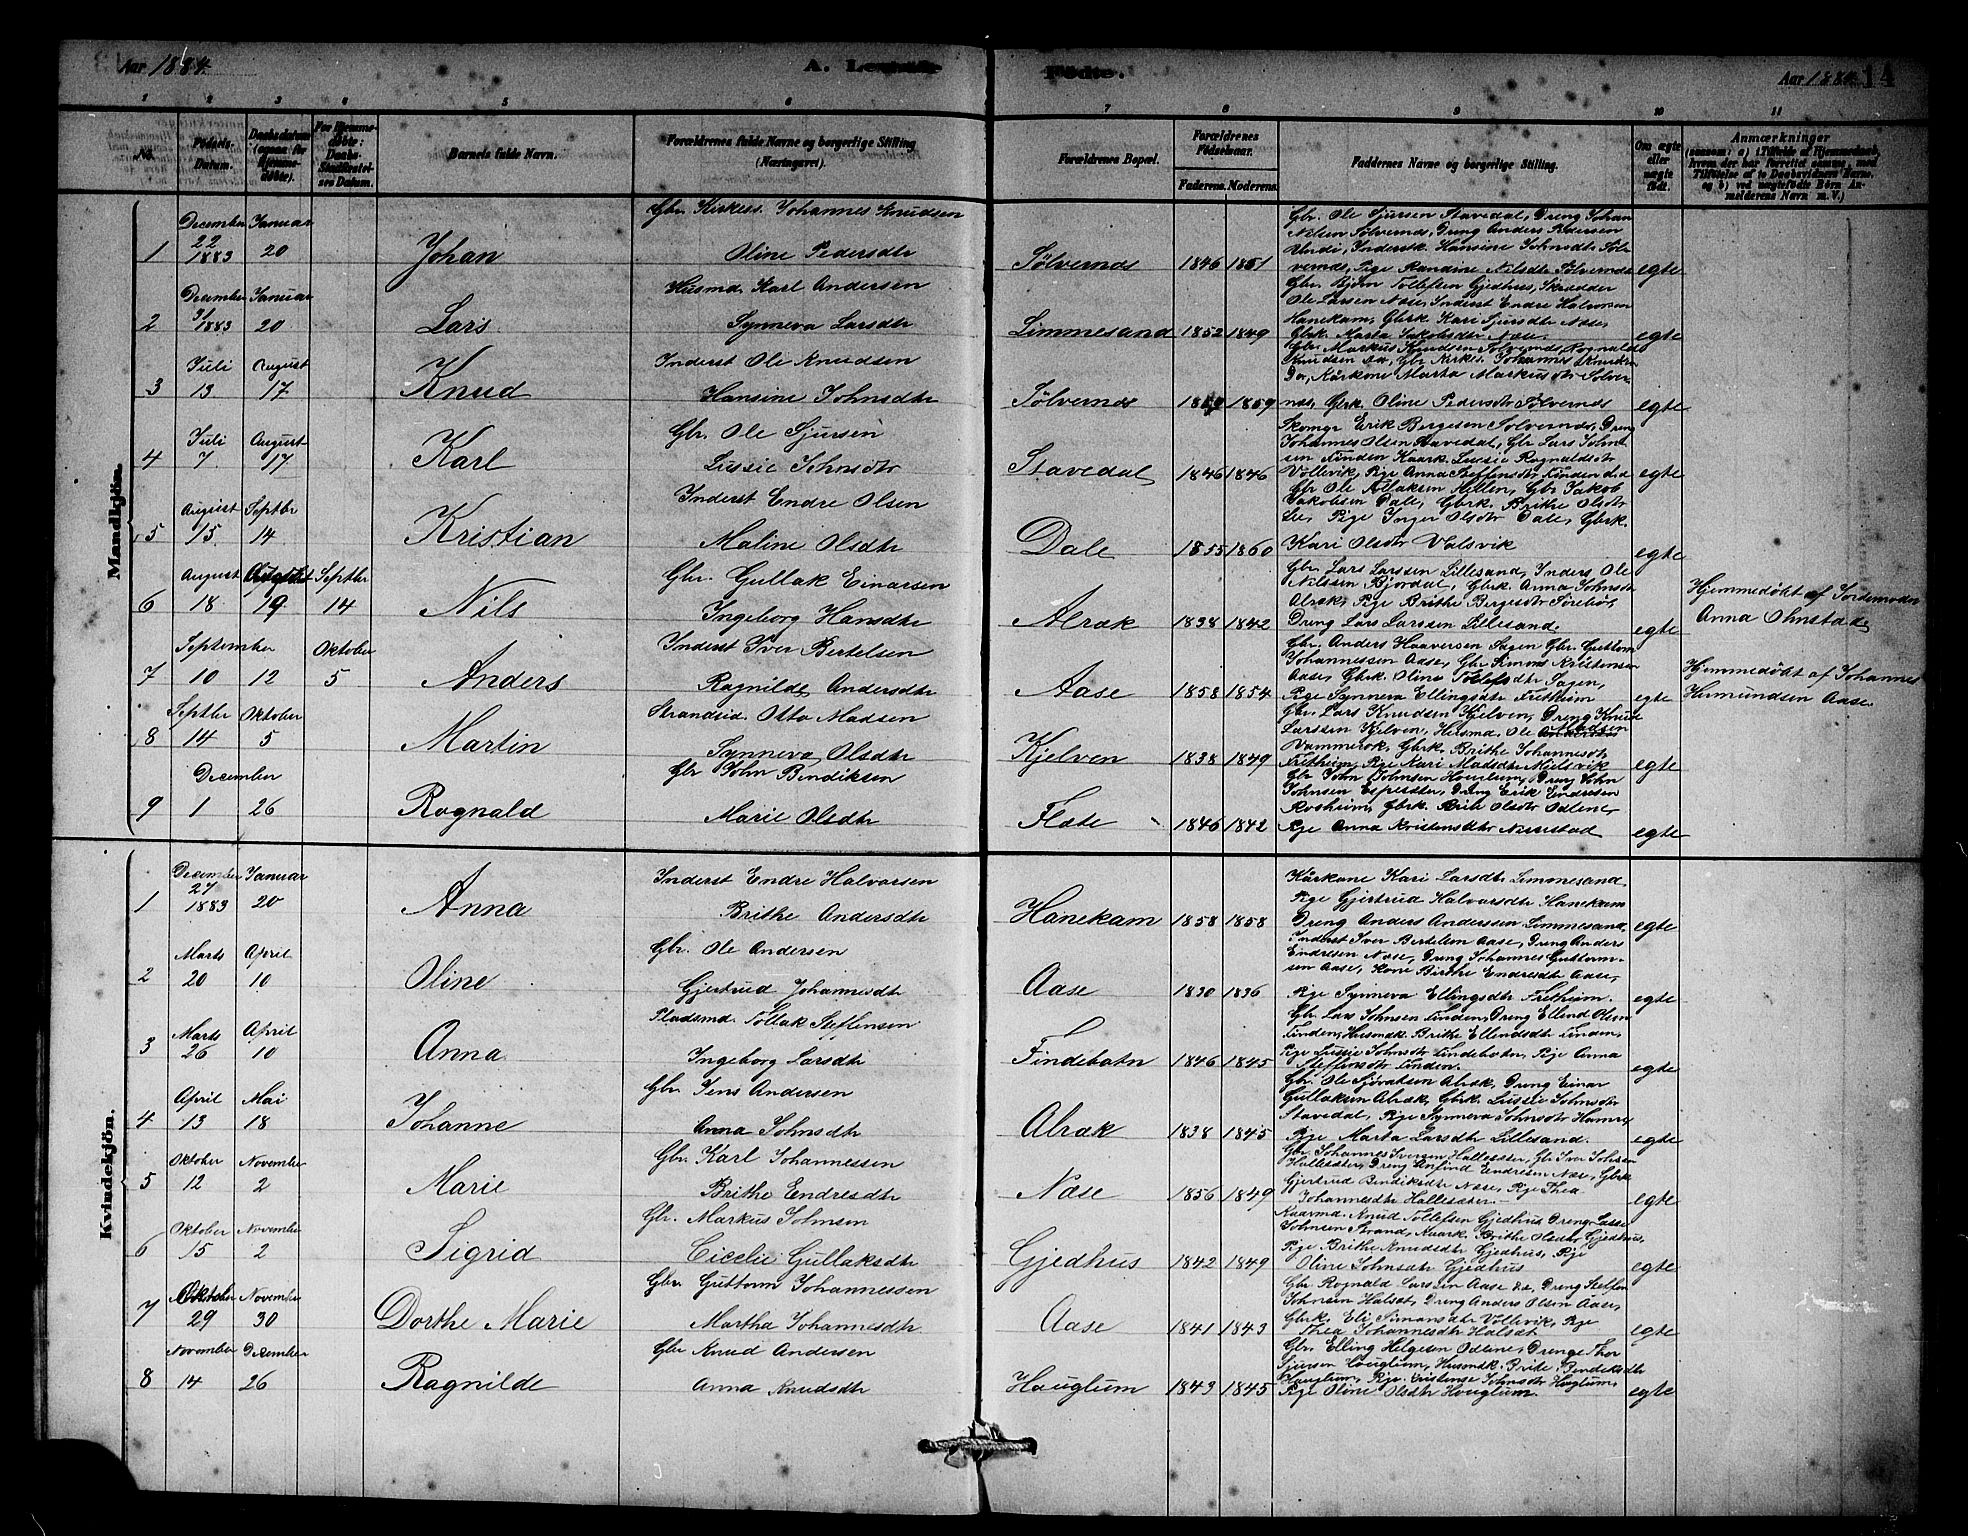 Aar 1884. A. Levende Fødte. Aar 1884. 14
1 2 3 4 5 6 7 8 9 10 11
No. Fødsels-Datum. Daabsdatum (ogsaa for Hjemmedøbte). For Hjemmedøbte: Daabs Stadfæstelsens Datum. Barnets fulde Navn. Forældrenes fulde Navne og borgerlige Stilling (Næringsvei). Forældrenes Bopæl. Forældrenes Fødselsaar. Faderens. Moderens. Faddernes Navne og borgerlige Stilling. Om ægte eller uægte født. Anmærkninger
(saasom: a) i Tilfælde af Hjemmedaab, hvem der har forrettet samme, med Tilføielse af to Daabsvidners Navne, og b) ved uægtefødte Børn Anmelderens Navn m. V.)
Mandkjøn.
1 December 22 1883 Januar 20 Johan
Gbr. Kirkes. Johannes Knudsen
Oline Pedersdtr
Sølvernes 1846 1851
Gbr. Ole Sjursen Stavedal, Dreng Johan
Nilsen Sølvernes, Dreng Anders Pedersen
Undi, Inderstk. Hansine Johnsdtr Sølvernes, Pige Randine Nilsdtr Sølvernes
egte
2 December 31 1883 Januar 20 Lars
Husmd. Karl Andersen
Synneva Larsdtr
Limmesand 1852 1849
Gbr. Bjørn Tollefsen Gjedhus, Skrædder
Ole Larsen Nase, Inderst Endre Halvorsen
Hanekam, Gbrk. Kari Sjursdtr Nase,
Gbrk. Marta Jakobsdtr Nase.
egte
3 Juli 13 August 17 Knud
Inderst Ole Knudsen
Hansine Johnsdtr
Sølvernes 1859 1859
Gbr. Markus Knudsen Sølvernes, Rognald
Knudsen do, Gbr. Kirkes. Johannes Knudsen
Do, Kårkone Marta Markusdtr Sølvernes, Gbrk. Oline Pedersdtr Sølvernes
egte
4 Juli 7 August 17 Karl
Gbr. Ole Sjursen
Lussie Johnsdtr
Stavedal 1846 1846
Skomgr Erik Bergesen Sølvernes, Dreng
Johannes Olsen Stavedal, Gbr Lars Johnsen Finden Kaark. Lussie Rognaldsdtr
Vollevik, Pige Anna Steffensdtr Finden
egte
5 August 15 Septbr 14 Kristian
Inderst Endre Olsen
Maline Olsdtr
Dale 1855 1860
Gbr Ole Mellen, Gbr Jakob
Jakobsen Dale, Gbrk. Brithe Olsdtr
Pige Inger Olsdtr Dale, Gbrk.
Kari Olsdtr Valsvik
egte
6 August 18 August 19 Septbr 14 Nils
Gbr. Gullak Einarsen
Ingeborg Hansdtr
Alræk 1838 1842
Gbr. Lars Larssen Lillesand, Inders Ole
Nilssen Bjordal, Gbrk Anna Johnsdtr
Alræk, Pige Brithe Bergesdtr Sørebø,
Dreng Lars Larssen Lillesand.
egte
Hjemmedøbt af Jordemoder
Anna Ohnstad
7 September 10 12 Oktober 5 Anders
Inderst Iver Bertelsen
Ragnilde Andersdtr
Aase 1858 1854
Gbr. Anders Haaversen Sagen Gbr. Guttorm
Johannessen Aase, Gbr Simon Kristensen
Aase, Gbrk Oline Sagen,
Pige Synneva Ellingsdtr Fretheim
egte
Hjemmedøbt af Johannes
Aase.
8 Septbr 14 Oktober 5 Martin
Strandsid. Otto Madsen
Synneva Olsdtr
Kjelven 1838 1849
Gbr. Lars Knudsen Kjelven, Dreng Knud
Larssen Kjelven, Husmd. Ole Madsen
Gbrk. Brithe Johannesdtr
Fretheim, Pige Kari Madsdtr Nielsvik
egte
9 December 1 26 Rognald
Gbr John Bendiksen
Marie Olsdtr
Flate 1846 1842
Gbr John Johnsen Houglum, Dreng John
Johnsen Espesæter, Dreng Erik Endresen
Rosheim, Gbrk. Brite Olsdtr Odline,
Pige Anna Kristensdtr
egte
Kvindekjøn.
1 December 27 1883 Januar 20 Anna
Inderst Endre Halvorsen
Brithe Andersdtr
Hanekam 1858 1858
Kårkone Kari Larsdtr Limmesand,
Pige Gjertrud Halvorsdtr Hanekam
Dreng Anders Anderssen Limmesand,
egte
2 Marts 20 April 10 Oline
Gbr. Ole Andersen
Gjertrud Johannesdtr
Aase 1830 1836
Inderst Iver Bertelsen Aase, Dreng Anders
Endresen Nase, Dreng Johannes Guttormsen Aase, Kone Birthe Endresdtr Aase,
Pige Synneva Ellingsdtr Fretheim.
egte
3 Marts 26 April 10 Anna
Pladsmd. Tollak Steffensen
Ingeborg Larsdtr
Findebotn 1846 1845
Gbr. Lars Johnsen Finden, Dreng Ellend Olsen
Finden, Husmdk. Brithe Ellendsdtr Finden,
Pige Lussie Johnsdtr Findebotn, Pige Anna
Steffensdtr Finden.
egte
4 April 13 Mai 18 Johanne
Gbr. Jens Andersen
Anna Johnsdtr
Alræk 1838 1845
Gbr. Ole Sjovatsen Alræk, Dreng Einar
Gullaksen Alræk, Gbrk. Lussie Johnsdtr
Stavedal, Pige Synneva Johnsdtr Hamre,
Pige Marta Larsdtr Lillesand.
egte
5 Oktober 12 November 2 Marie
Gbr. Karl Johannessen
Brithe Endresdtr
Nase 1856 1849
Gbr. Johannes Iversen Hallesæter, Gbr Iver Johnsen
Hallesæter, Dreng Anfind Endresen Nase, Gbrk
Gjertrud Bendiksdtr Nase, Pige Thea
Johannesdtr Hallesæter.
egte
6 Oktober 15 November 2 Sigrid
Gbr. Markus Johnsen
Cicelie Gullaksdtr
Gjedhus 1842 1849
Kaarmd. Knud Tollefsen Gjedhus Dreng Lasse
Johnsen Strand, Kaark. Brithe Olsdtr Gjedhus,
Pige Brithe Knudsdtr Gjedhus, Pige
Oline Johnsdtr Gjedhus
egte
7 Oktober 29 November 30 Dorthe Marie
Gbr. Guttorm Johannessen
Martha Johannesdtr
Aase 1841 1843
Gbr Rognald Larssen Aase, Dreng Steffen
Johnsen Halsæt, Dreng Anders Olsen Aase,
Gbrk. Eli Simonsdtr Vollevik, Pige
Thea Johannesdtr Halsæt
egte
8 November 14 December 26 Ragnilde
Gbr Knud Andersen
Anna Knudsdtr
Houglum 1843 1845
Gbr. Elling Helgesen Odline, Dreng Thor
Sjursen Houglum, Husmdk. Brite Bendiksdtr
Houglum, Pige Kristense Johnsdtr Houglum,
Pige Oline Olsdtr Houglum.
egte